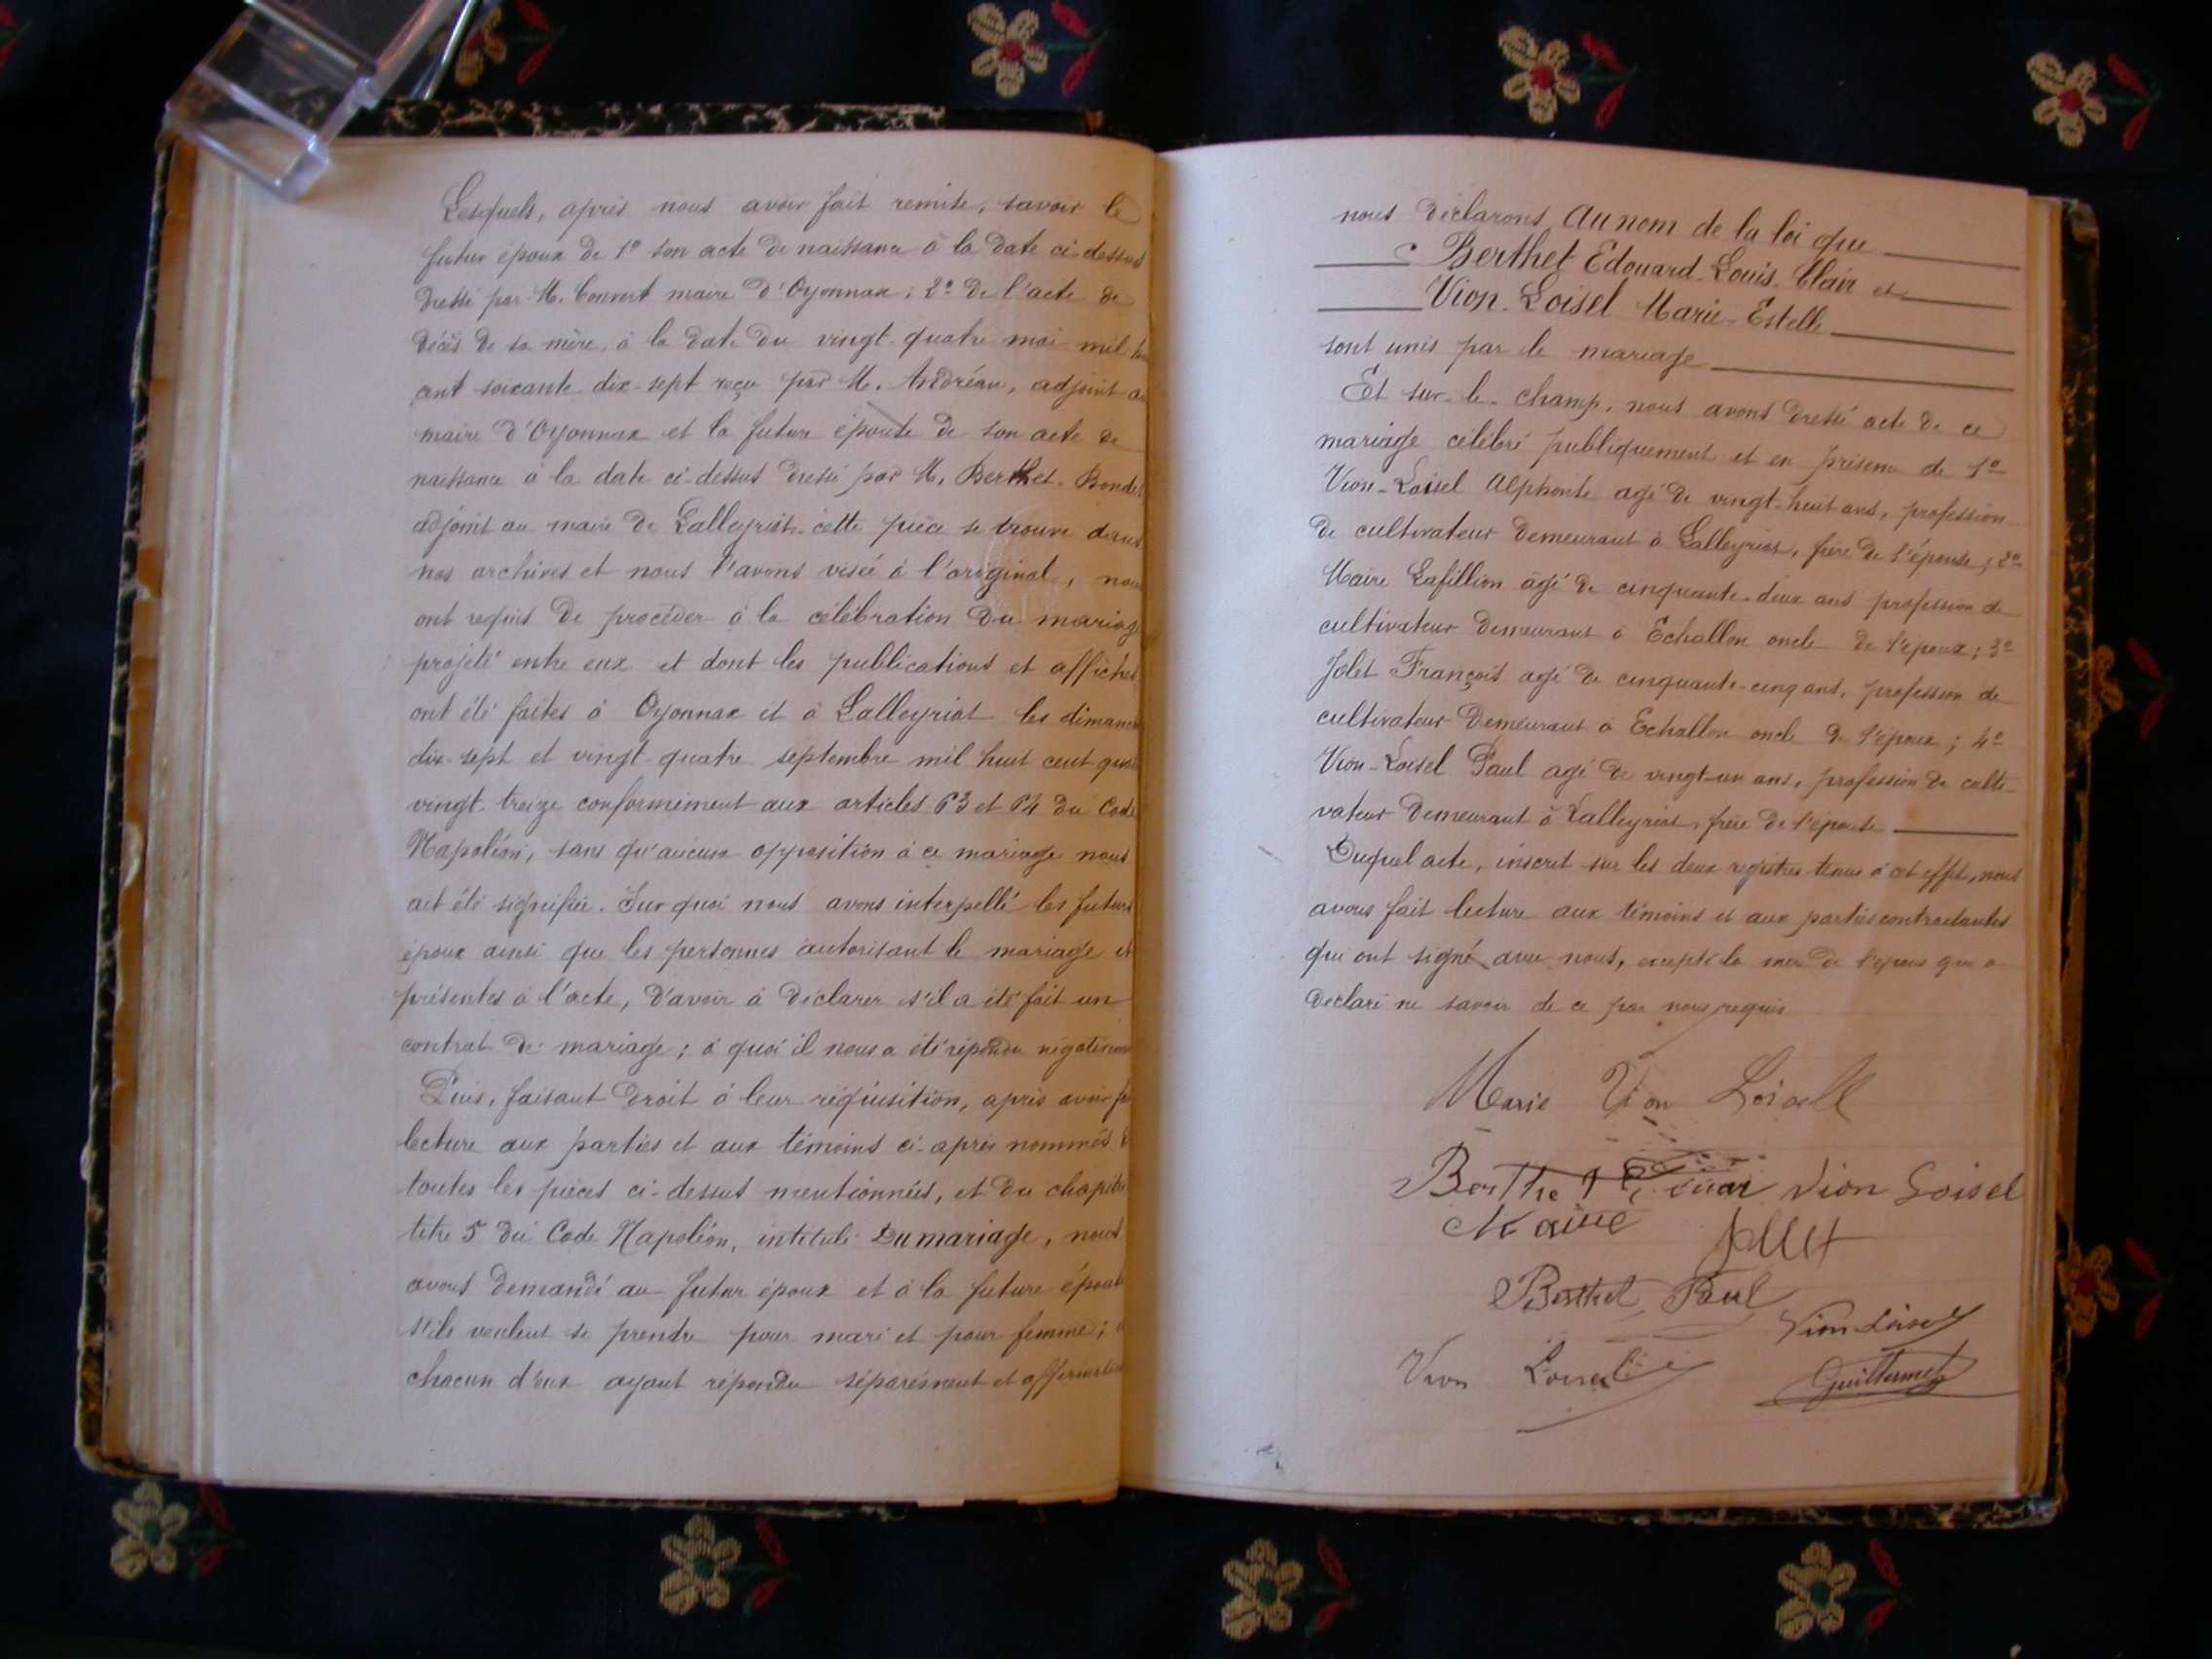 Lesquels, après nous avoir fait remise, savoir le
futur époux de 1º son acte de naissance à la date ci-dessus
dressé par M. Convert maire d'Oyonnax ; 2º de l'acte de
décès de sa mère à la date du vingt-quatre mai mil
cent soixante-dix-sept reçu par M. Andréan, adjoint au
maire d'Oyonnax et la future épouse de son acte de
naissance à la date ci-dessus dressé par M. Berthet-Bondet
adjoint au maire de Lalleyriat cette pièce se trouve dans
nos archives et nous l'avons visée à l'original, nous
ont requis de procéder à la célébration du mariage
projeté entre eux et dont les publications et affiches
ont été faites à Oyonnax et à Lalleyriat les dimanches
dix-sept et vingt-quatre septembre mil huit cent quatre
vingt-treize conformément aux articles 63 et 64 du Code
Napoléon, sans qu'aucune opposition à ce mariage nous
ait été signifiée. Sur quoi nous avons interpellé les futurs
époux ainsi que les personnes autorisant le mariage et
présentes à l'acte, d'avoir à déclarer s'il a été fait un
contrat de mariage ; à quoi il nous a été répondu négativement
Puis, faisant droit à leur réquisition, après avoir fait
lecture aux parties et aux témoins ci-après nommés de
toutes les pièces ci-dessus mentionnées, et du chapitre
titre 5 du Code Napoléon, intitulé Du mariage, nous
avons demandé au futur époux et à la future épouse
s'ils veulent se prendre pour mari et pour femme ;
chacun d'eux ayant répondu séparément et affirmativement
nous déclarons Au nom de la loi que
Berthet Edouard-Louis-Clair et
Vion-Loisel Marie-Estelle
sont unis par le mariage
Et sur-le-champ, nous avons dressé acte de ce
mariage célébré publiquement et en présence de 1º
Vion-Loisel Alphonse agé de vingt-huit ans, profession
de cultivateur demeurant à Lalleyriat, frère de l'épouse ; 2º
Maire Lafillion âgé de cinquante-deux ans profession de
cultivateur demeurant à Echallon oncle de l'époux ; 3º
Jolet François agé de cinquante-cinq ans, profession de
cultivateur demeurant à Echallon oncle de l'époux ; 4º
Vion-Loisel Paul agé de vingt-un ans, profession de culti-
vateur demeurant à Lalleyriat, frère de l'épouse
Duquel acte, inscrit sur les deux registres tenus à cet effet, nous
avons fait lecture aux témoins et aux parties contractantes
qui ont signé avec nous, excepté la mère de l'épouse qui a
déclaré ne savoir de ce par nous requis
Marie Vion Loisell
Berthet Vion Loisel
Maire Jollet
Berthet Paul
Vion Loisel
Vion Loisel Guillermet